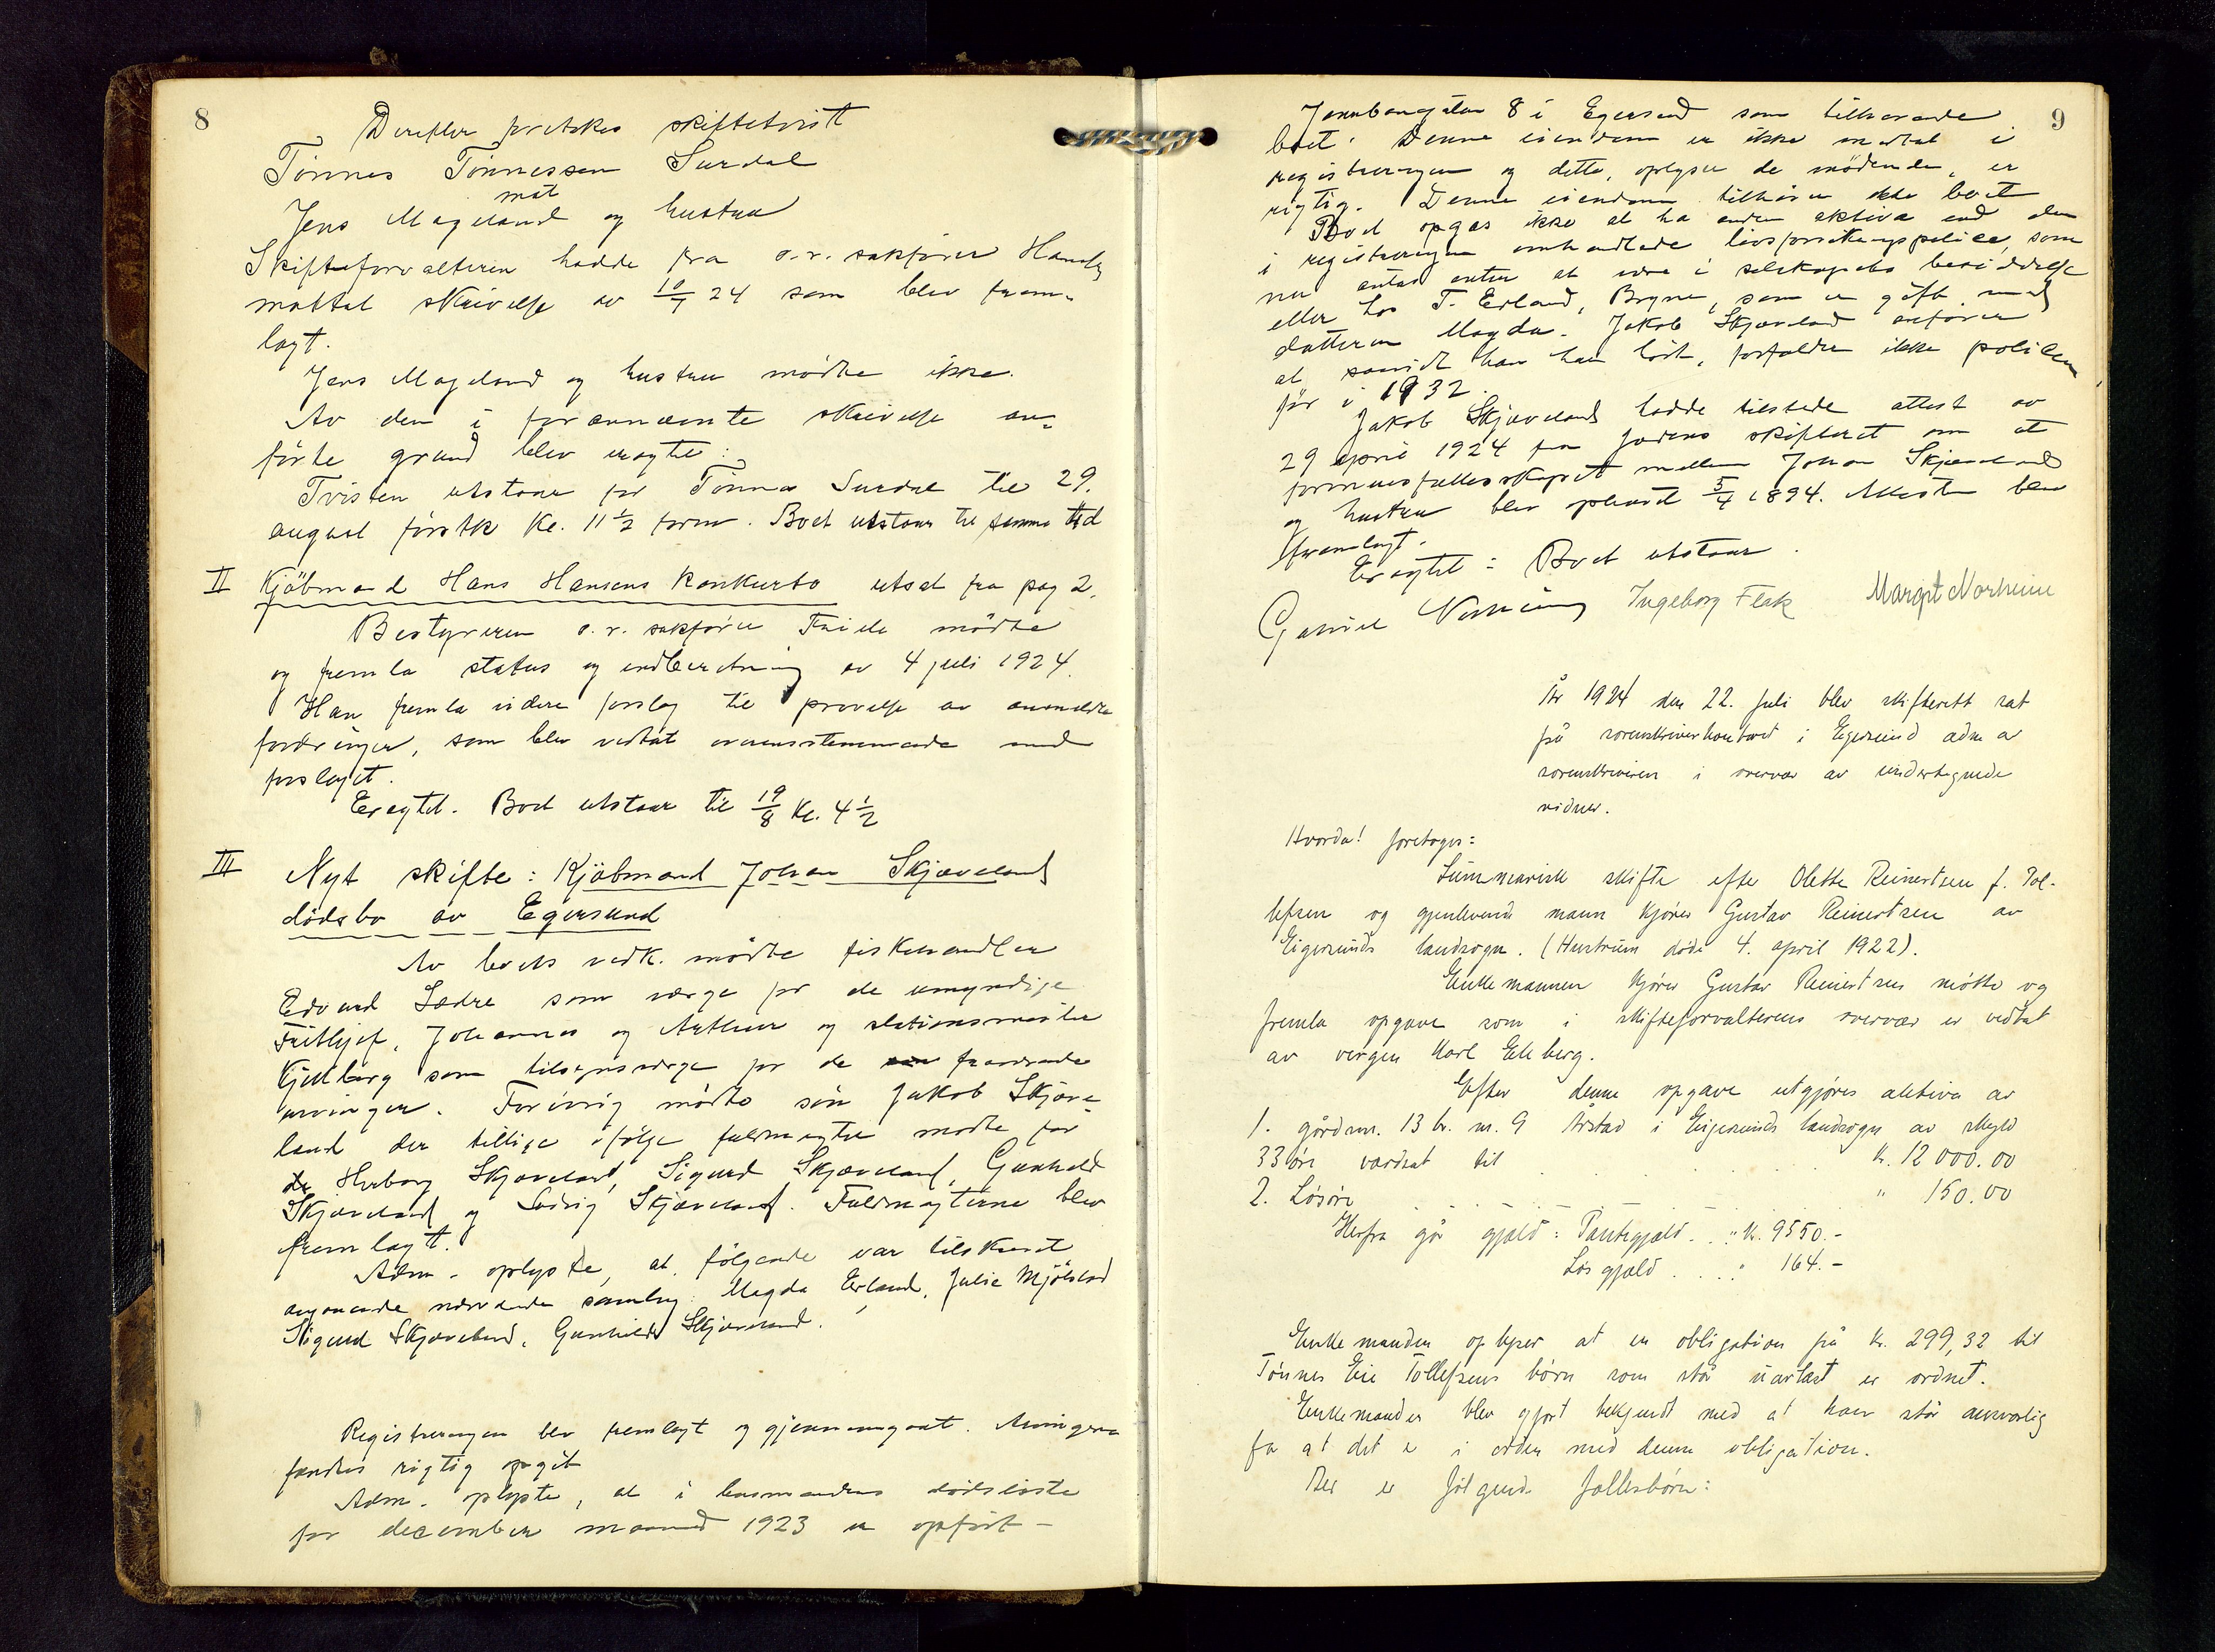 8
Derefter foretokes skiftetvist
Tönnes Tönnessen Surdal
mot
Jens Mageland og hustru
Skifteforvalteren hadde fra o.r. sakförer Handby
mottat skrivelse av 10/7 24 som blev frem-
lagt.
Jens Mageland og hustru mödte ikke.
Av den i forannævnte skrivelse an-
förte grund blev eragtet:
Tvisten utstaar for Tönnes Surdal til 29.
august förstk kl. 11 1/2 form. Boet utstaar til samme tid
II Kjöbmand Hans Hansens konkursbo utsat fra pag 2.
Bestyreren o.r. sakförer mödte
og fremla status og indberetning av 4 juli 1924.
Han fremla videre forslag til prövelse av anmeldte
fordringer, som blev vedtat overensstemmende med
forslaget.
Eragtet. Boet utstaar til 19/8 kl. 4 1/2
III Nyt skifte: Kjöbmand Johan Skjævelands
dödsbo av Egersund
Av boets vedk. mödte fiskehandler
Edvard Sædre som værge for de umyndige
Frithjof, Johannes og Arthur og stationsmester
Kjellberg som tilsynsværge for de fraværende
arvinger. Forövrig mödte sön Jakob Skjæve-
land der tillige ifölge fuldmagter mödte for
Herborg Skjæveland, Sigurd Skjæveland, Gunhild
Skjæveland og Solveig Skjæveland. Fuldmagterne blev
fremlagt.
Adm. oplyste, at fölgende var tilskrevet
angaaende nærværende samling: Magda Erland, Julie Mjölsnes
Sigurd Skjæveland, Gunhild Skjæveland.
Registreringen blev fremlagt og gjennemgaat. Arvingerne
fandtes rigtig opgit
Adm. oplyste, at i husmandens dödsliste
for december maaned 1923 er opfört -
9
Jernbanegaten 8 i Egersund som tilhörende
boet. Denne eiendom er ikke medtat i
registreringen og dette, oplyser de mödende, er
rigtig. Denne eiendom tilhörer ikke boet
Boet opgas ikke at ha anden aktiva end den
i registreringen omhandlede livsforsikringspolice, som
nu antas enten at være i selskapets besiddelse
eller hos T. Erland, Bryne, som er gift med
datteren Magda. Jakob Skjæveland anförer
at saavidt han har hört, forfalder ikke policen
för i 1932.
Jakob Skjæveland hadde tilstede attest av
29 april 1924 fra Jædens skifteret om at
formuesfællesskapet mellem Johan Skjæveland
og hustru blev ophævet 5/4 1894. Attesten blev
fremlagt.
Eragtet: Boet utstaar.
Gabriel Ingeborg Flak Margit Norheim
År 1924 den 22. juli blev skifterett sat
på sorenskriverkontoret i Egersund adm av
sorenskriveren i overvær av undertegnede
vidner.
Hvorda! foretages:
Summarisk skifte efter Olette Reinertsen f. Tol-
lefsen og gjenlevende mann kjörer Gustav Reinertsen av
Eigersunds landsogn. (Hustruen döde 4. april 1922).
Enkemannen kjörer Gustav Reinertsen mötte og
fremla opgave som i skifteforvalterens overvær er vedtat
av vergen Karl Eikberg.
Efter denne opgave utgjöres aktiva av
1. gårdsnr. 13 br. nr. 9 Årstad i Eigersunds landsogn av skyld
33 öre værdsat til . . . . . . kr. 12 000.00
2. Lösöre . . . . . . " 150.00
Herfra går gjæld: Pantegjæld . . " kr. 9550.-
Lös gjæld . . . . " 164.-
Enkemanden oplyser at en obligation på kr. 299,32 til
Tönnes Eie Tollefsens börn som står uavlæst er ordnet.
Enkemanden blev gjort bekjendt med at han står ansvarlig
for at det er i orden med denne obligation.
Der er fölgende fællesbörn: